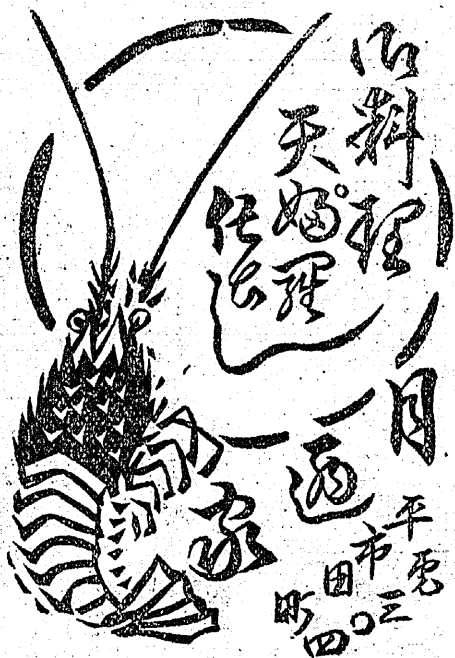 御料理
天婦゜羅
仕出し
月迺家
平市田町
電三〇四